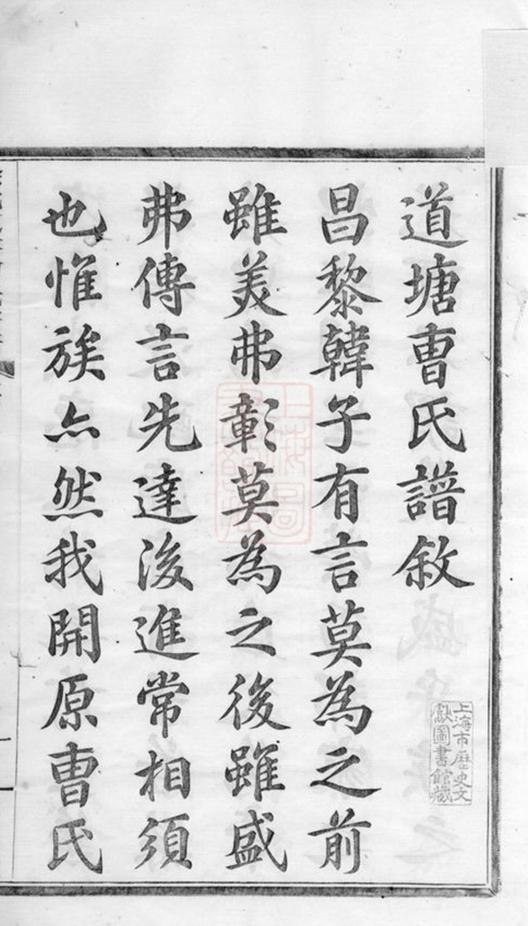 道塘曹氏譜敘
昌黎韓子有言莫為之前
雖美弗彰莫為之後雖盛
弗傳言先達後進常相須
也惟族亦然我開原曹氏
上海市歷史文
獻圖書館藏
上海圖
書館藏